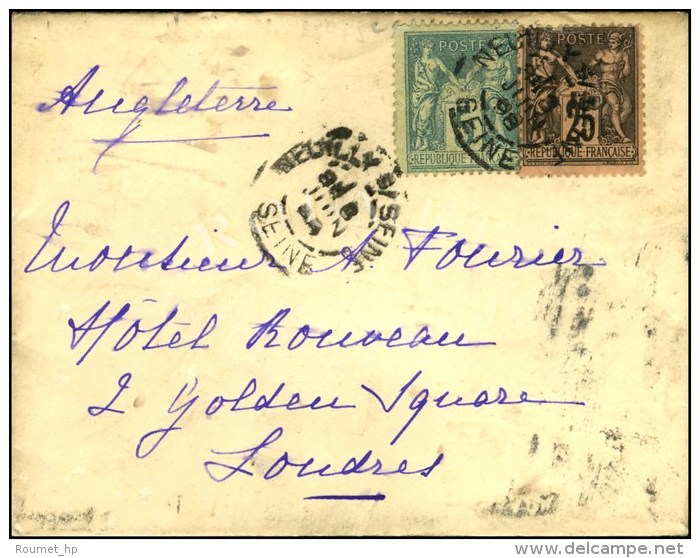 Angleterre
POSTE
REPUBLIQUE FRANÇAISE
POSTE
25
REPUBLIQUE FRANÇAISE
SEINE
NEUILLY S/SEINE
SEINE
Monsieur A Fourier
Hôtel Rouveau
2 Golden Square
Londres
© Roumet_hp
www.delcampe.net